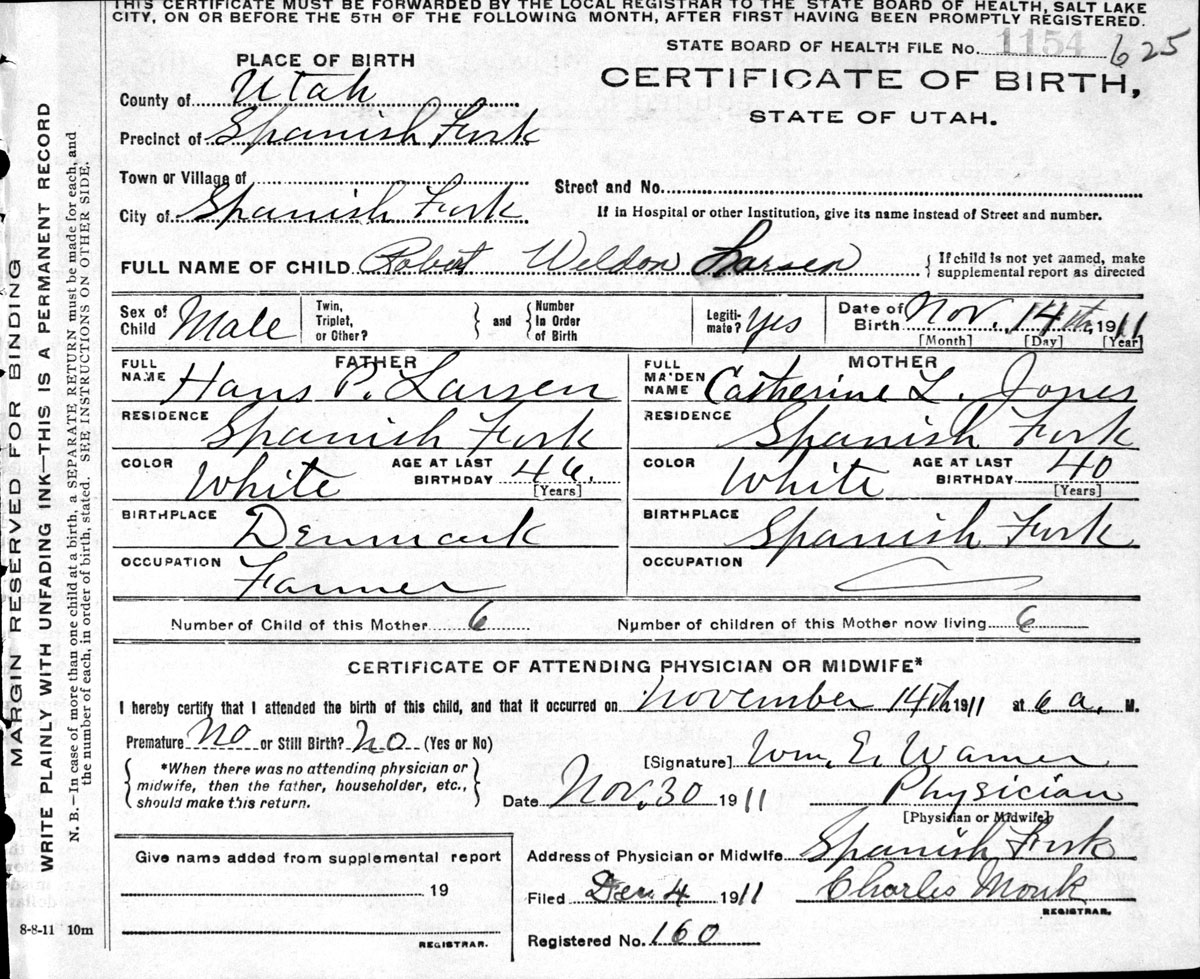 THIS CERTIFICATE MUST BE FORWARDED BY THE LOCAL REGISTRAR TO THE STATE BOARD OF HEALTH, SALT LAKE
CITY, ON OR BEFORE THE 5TH OF THE FOLLOWING MONTH, AFTER FIRST HAVING BEEN PROMPTLY REGISTERED.
STATE BOARD OF HEALTH FILE No. 1154 625
PLACE OF BIRTH
CERTIFICATE OF BIRTH,
STATE OF UTAH.
County of Utah
Precinct of Spanish Fork
Town or Village of
Street and No.
City of Spanish Fork
If in Hospital or other Institution, give its name instead of Street and number.
FULL NAME OF CHILD Robert Weldon Larsen { If child is not yet named, make
supplemental report as directed
Sex of Child Male
Twin, Triplet, or Other? } and { Number In Order of Birth
Legitimate? yes
Date of Birth Nov. 14th, 1911
[Month] [Day] [Year]
FATHER
FULL NAME Hans P. Larsen
RESIDENCE Spanish Fork
COLOR White AGE AT LAST BIRTHDAY 46.
[Years]
BIRTHPLACE Denmark
OCCUPATION Farmer
MOTHER
FULL MAIDEN NAME Catherine L. Jones
RESIDENCE Spanish Fork
COLOR White AGE AT LAST BIRTHDAY 40
[Years]
BIRTHPLACE Spanish Fork
OCCUPATION
Number of Child of this Mother 6 Number of children of this Mother now living 6
CERTIFICATE OF ATTENDING PHYSICIAN OR MIDWIFE*
I hereby certify that I attended the birth of this child, and that it occurred on November 14th 1911 at 6 a. M.
Premature No or Still Birth? No (Yes or No)
*When there was no attending physician or
midwife, then the father, householder, etc.,
should make this return.
[Signature] Wm. E. Warner
Date Nov. 30 1911 Physician
[Physician or Midwife]
Give name added from supplemental report
19
REGISTRAR.
Address of Physician or Midwife Spanish Fork
Filed Dec 4 1911 Charles Monk
REGISTRAR.
Registered No. 160
8-8-11 10m
MARGIN RESERVED FOR BINDING
WRITE PLAINLY WITH UNFADING INK—THIS IS A PERMANENT RECORD
N. B.—In case of more than one child at a birth, a SEPARATE RETURN must be made for each, and
the number of each, in order of birth, stated. SEE INSTRUCTIONS ON OTHER SIDE.